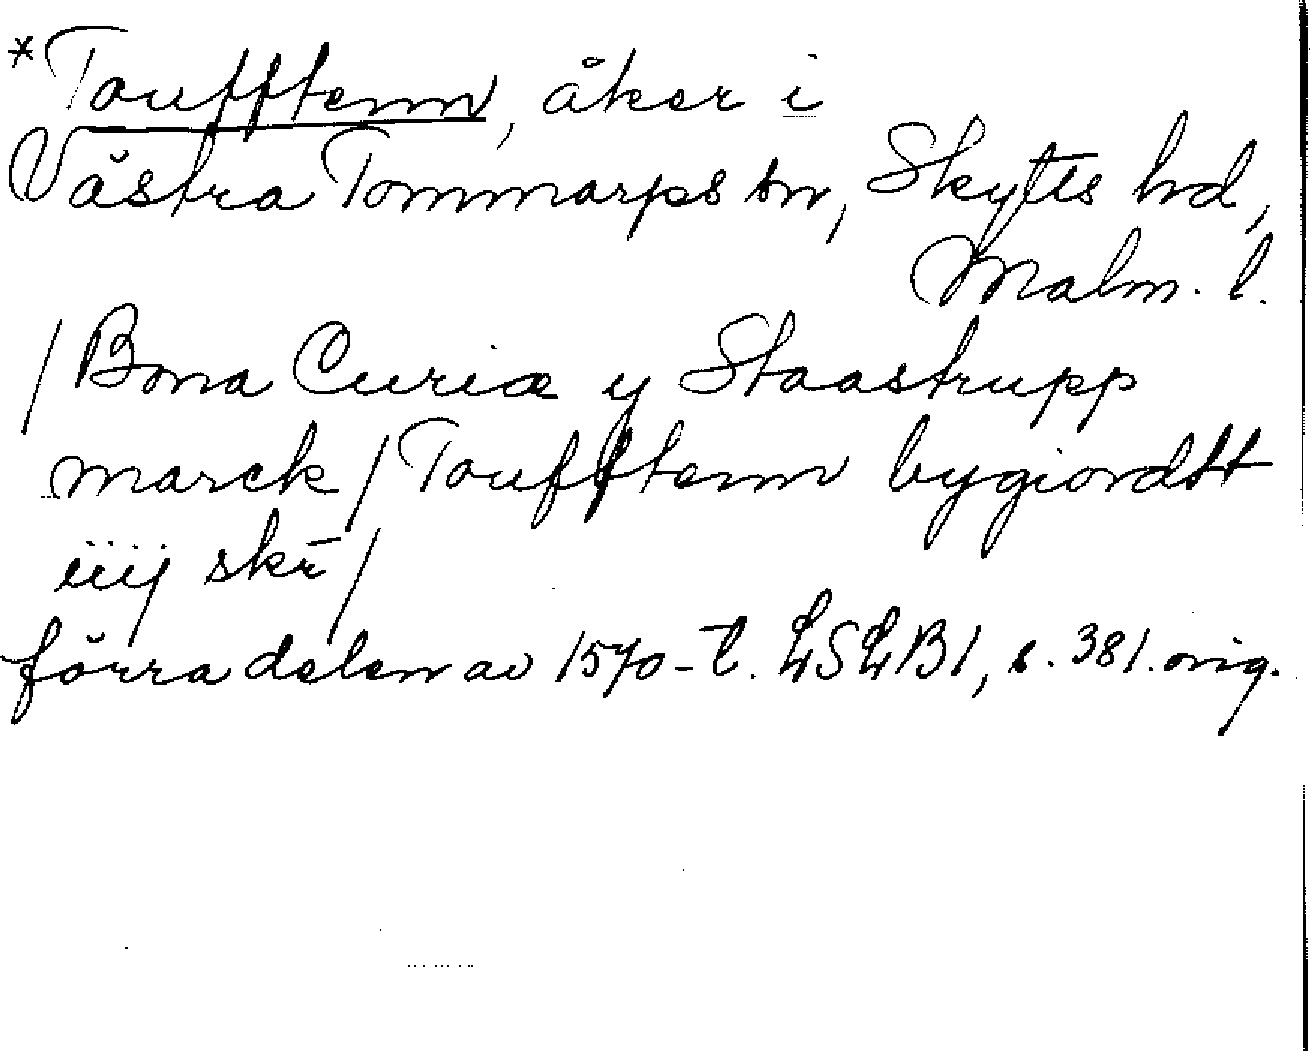 *Toufftenn, åker i
Västra Tommarps sn, Skytts hd,
Malm. l.
/ Bona Curiæ y Staastrupp
marck / Toufftenn bygiordtt
iiij skr̄ /
förra delen av 1570-t. LSLB1, s. 381. orig.